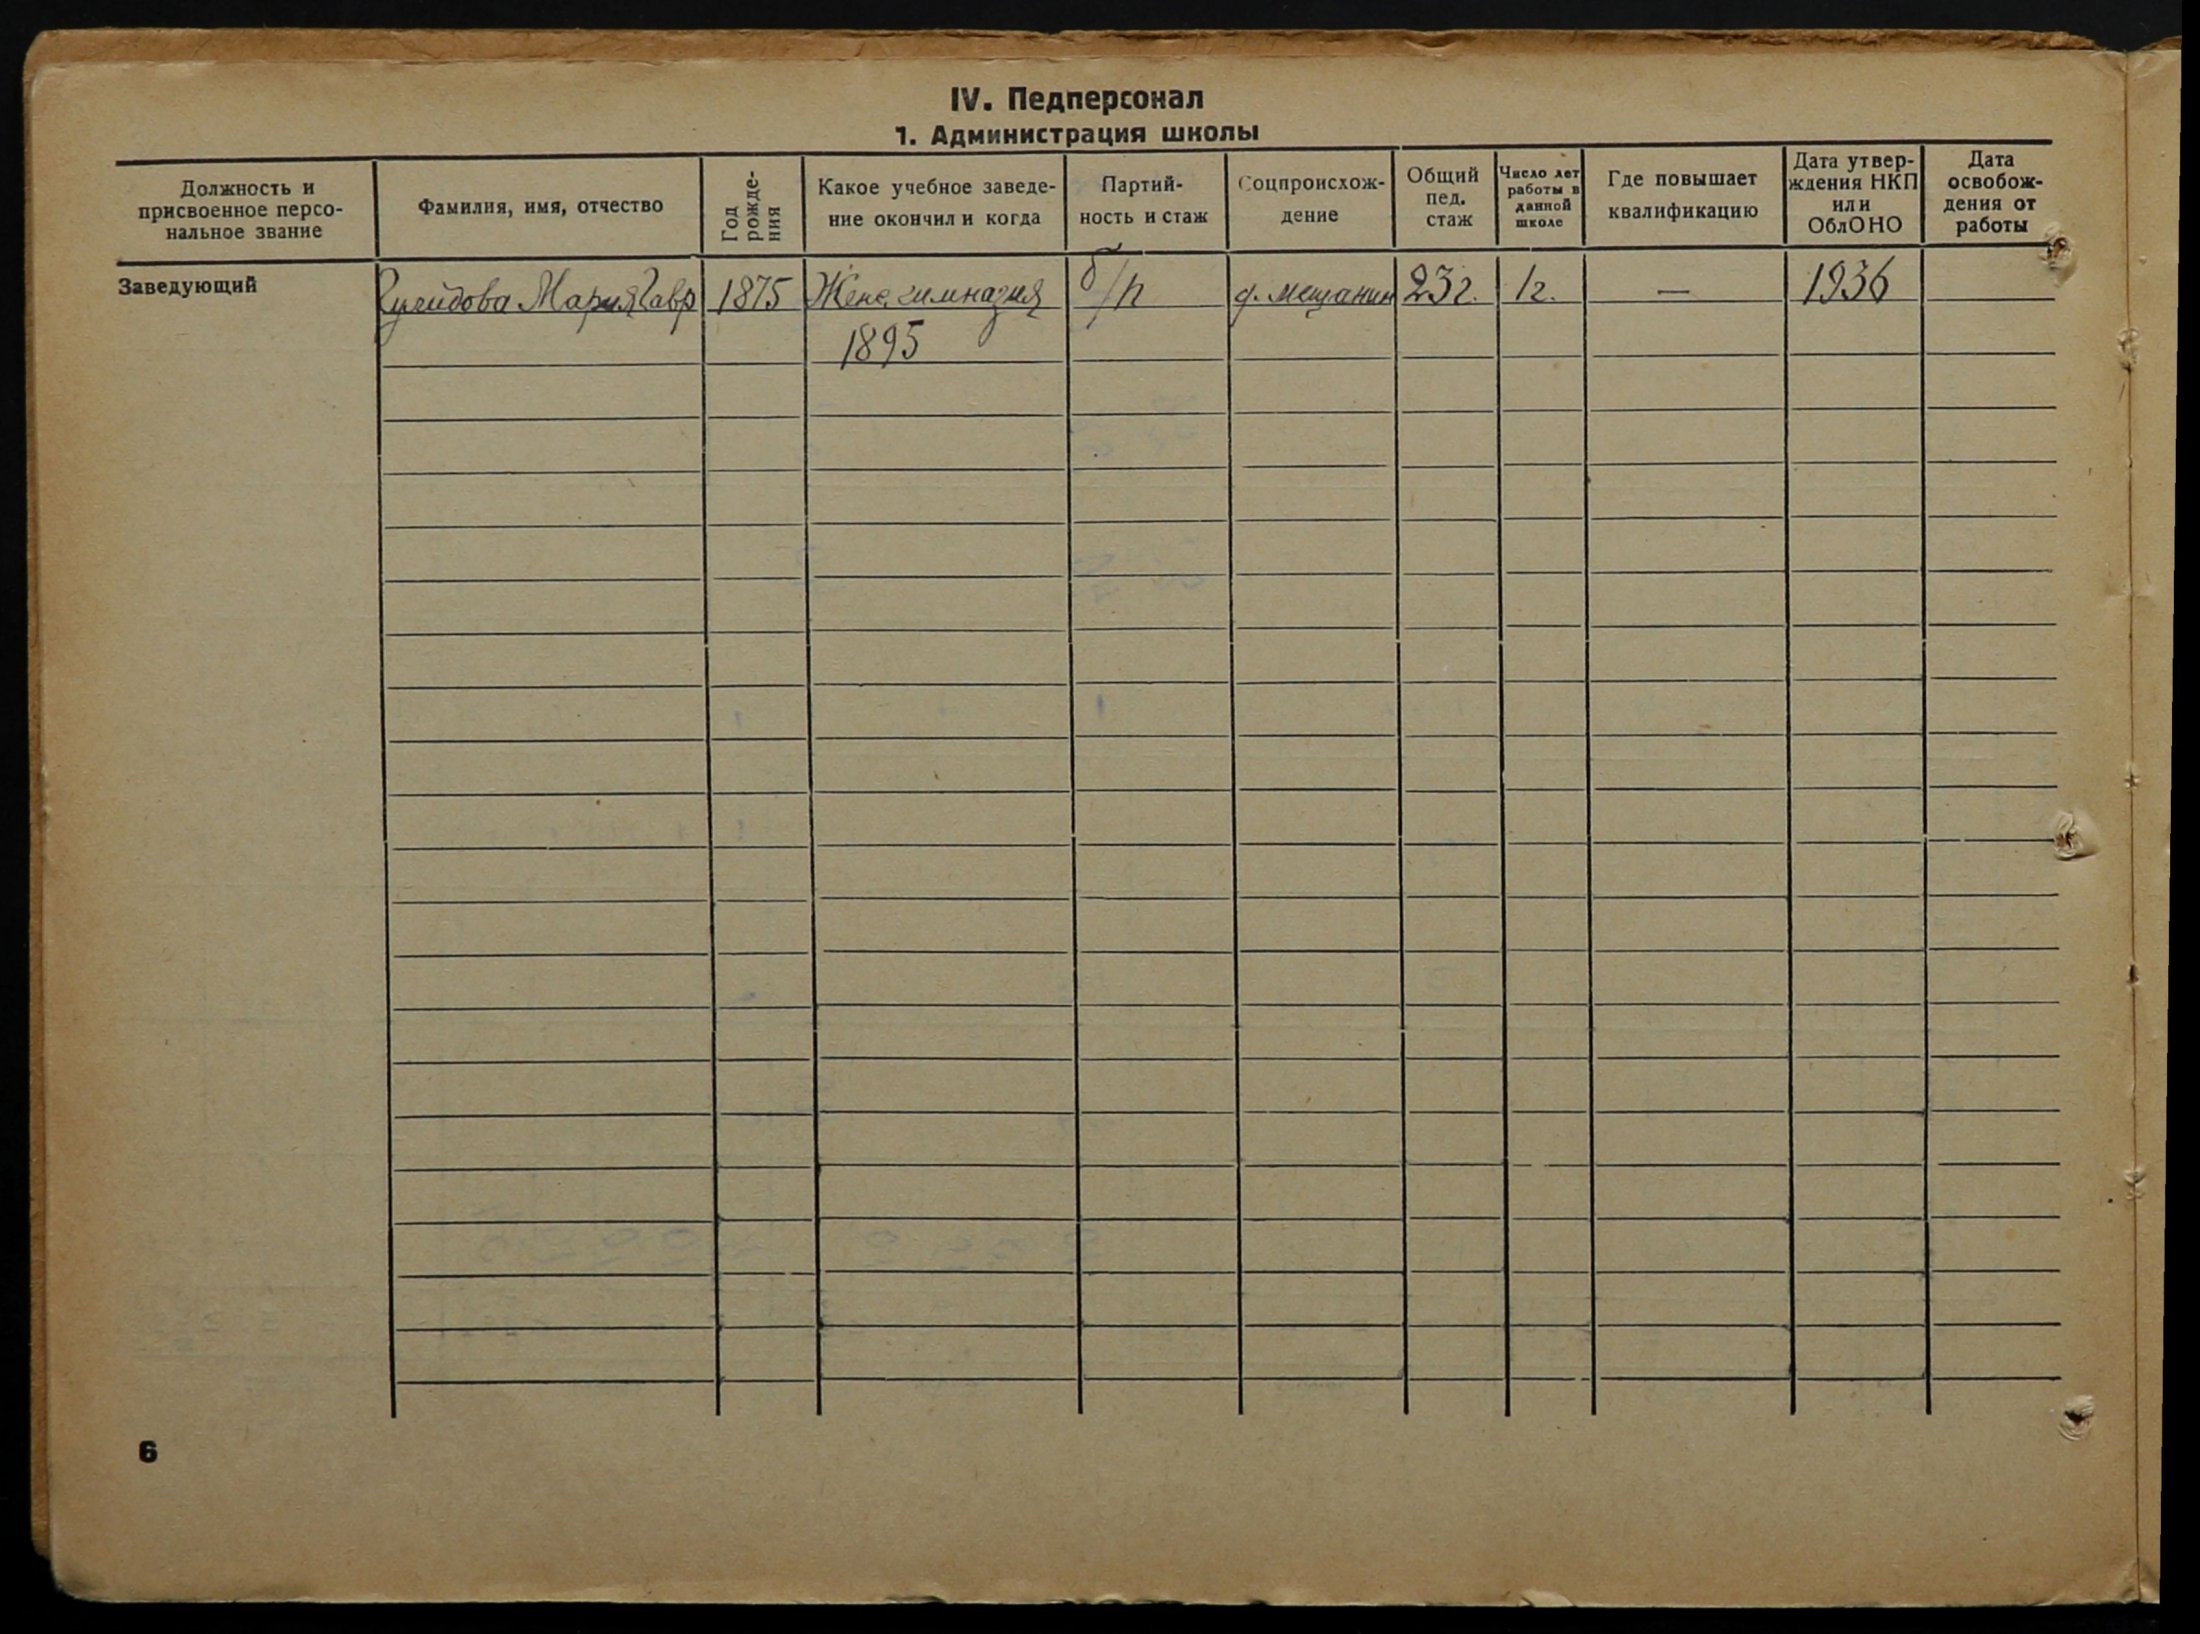 IV. Педперсонал
1. Администрация школы
Должность и
присвоенное персо-
нальное звание
Фамилия, имя, отчество
Год
рожде-
ния
Какое учебное заведе-
ние окончил и когда
Партий-
ность и стаж
Соцпроисхож-
дение
Общий
пед.
стаж
Число лет
работы в
данной
школе
Где повышает
квалификацию
Дата утвер-
ждения НКП
или
ОблОНО
Дата
освобож-
дения от
работы
Заведующий
Мария Гавр
1875
Жене, гимназия
1895
б/п
д. мещанин
23 г.
1 г.
—
1936
6